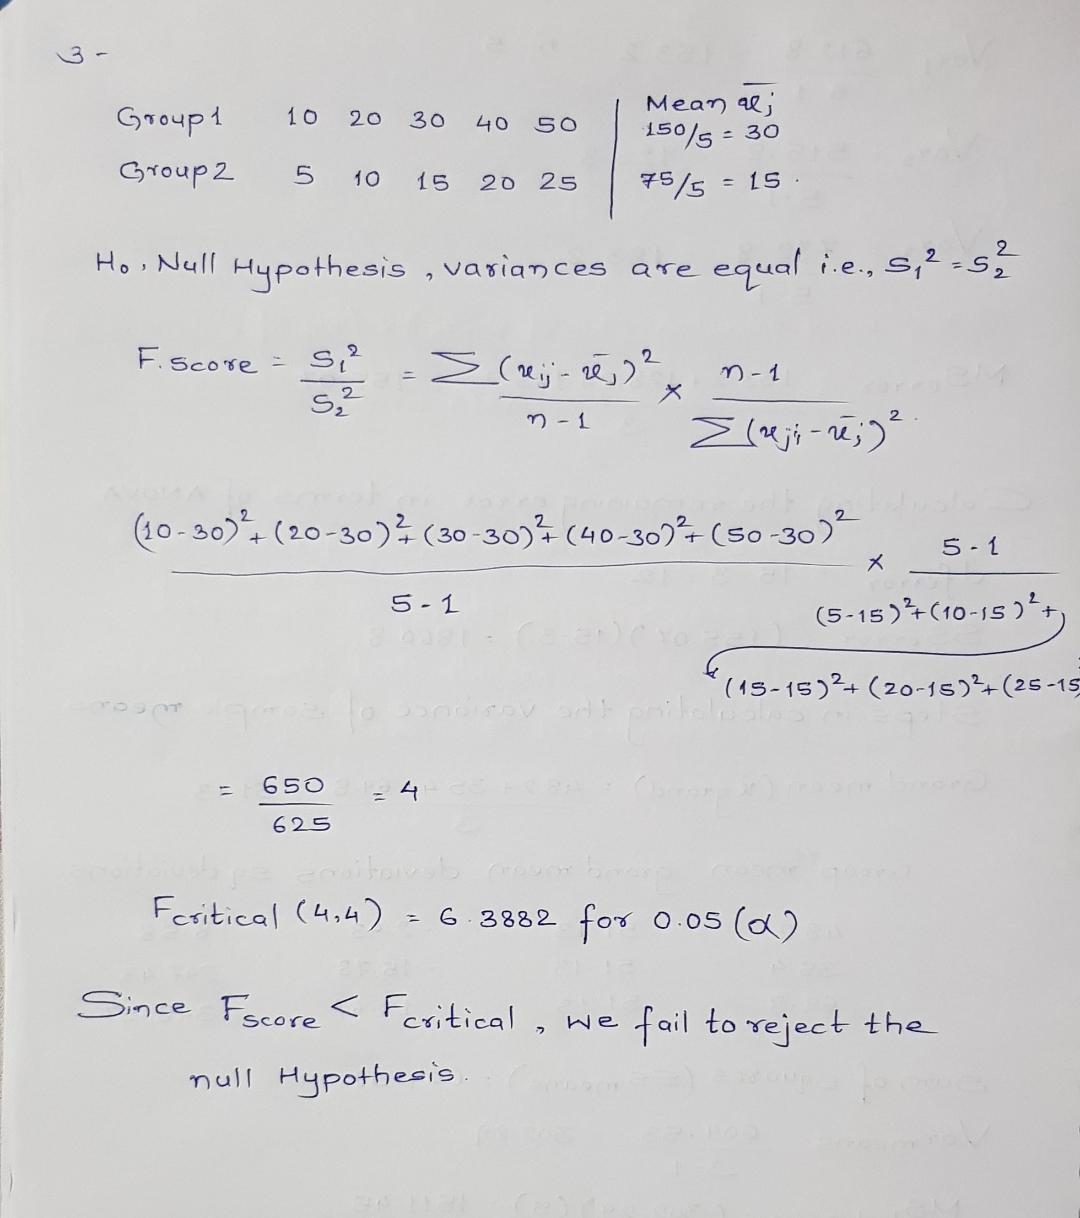 3-
Group 1 10 20 30 40 50
Group 2 5 10 15 20 25
Mean x̄j
150/5 = 30
75/5 = 15.
H₀, Null Hypothesis, variances are equal i.e., S₁² = S₂²
F.Score = S₁²/S₂² = Σ(xij - x̄j)²/(n-1) × (n-1)/Σ(xji - x̄j)².
(10-30)²+(20-30)²+(30-30)²+(40-30)²+(50-30)²/(5-1) × (5-1)/(5-15)²+(10-15)²+
(15-15)²+(20-15)²+(25-15
= 650/625 = 4
Fcritical (4,4) = 6.3882 for 0.05 (α)
Since Fscore < Fcritical, we fail to reject the
null Hypothesis.